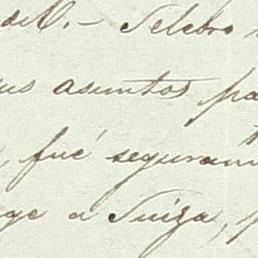 de V. - Celebro
us asuntos pa
, fué seguram
ge a Suiza, p